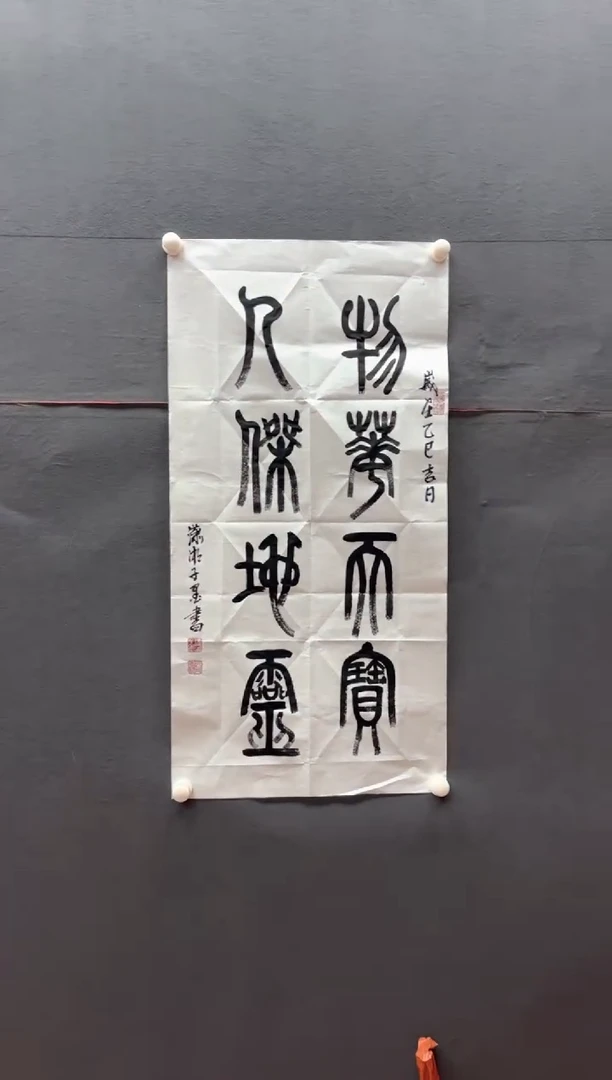 物華天寶
人傑地靈
歲在乙巳吉日
子墨書